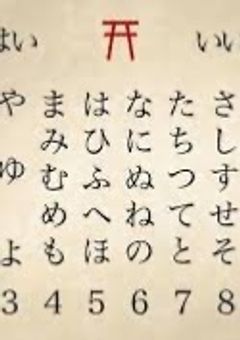 はい いい
さしすせそ
たちつてと
なにぬねの
はひふへほ
まみむめも
やゆよ
3 4 5 6 7 8